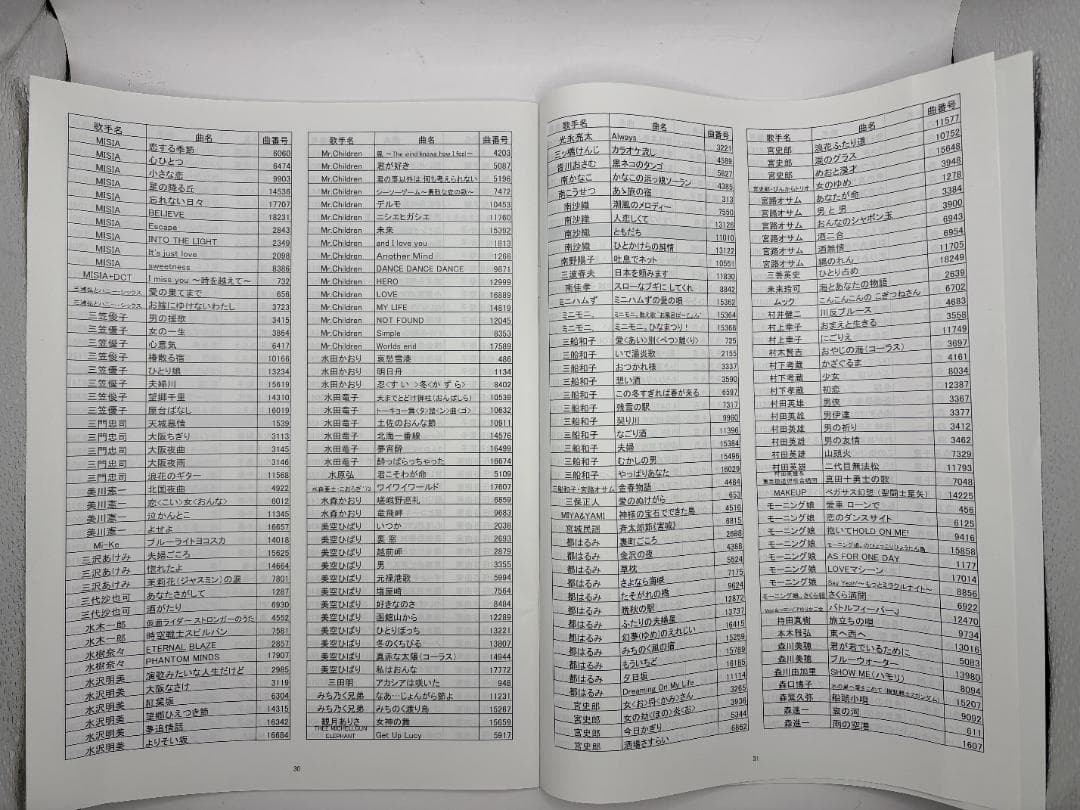 歌手名 曲名 曲番号
MISIA 恋する季節 6060
MISIA 心ひとつ 6474
MISIA 小さな恋 9903
MISIA 星の降る丘 14536
MISIA 忘れない日々 17707
MISIA BELIEVE 18231
MISIA Escape 2843
MISIA INTO THE LIGHT 2349
MISIA It's just love 2098
MISIA sweetness 8386
MISIA+DCT I miss you ～時を越えて～ 732
愛の果てまで 656
お嫁にゆけないわたし 3723
三笠優子 男の援歌 3415
三笠優子 女の一生 3864
三笠優子 心意気 6417
三笠優子 椿散る宿 10166
三笠優子 ひとり娘 13234
三笠優子 夫婦川 15619
三笠優子 望郷千里 14310
三笠優子 屋台ばなし 16019
三門忠司 天城慕情 1539
三門忠司 大阪ちぎり 3113
三門忠司 大阪夜曲 3145
三門忠司 大阪夜雨 3146
三門忠司 浪花のギター 11568
美川憲一 北国夜曲 4922
美川憲一 恋<こい>女<おんな> 6012
美川憲一 泣かんとこ 11345
美川憲一 よせよ 16657
Mi-Ke ブルーライトヨコスカ 14018
三沢あけみ 夫婦ごころ 15625
三沢あけみ 惚れたよ 14664
三沢あけみ 茉莉花(ジャスミン)の涙 7801
三代沙也可 あなたさがして 1287
三代沙也可 酒がたり 6930
水木一郎 仮面ライダー ストロンガーのうた 4552
水木一郎 時空戦士スピルバン 7581
水樹奈々 ETERNAL BLAZE 2857
水樹奈々 PHANTOM MINDS 17907
水沢明美 演歌みたいな人生だけど 2985
水沢明美 大阪なさけ 3119
水沢明美 紅葉坂 6304
水沢明美 望郷ひえつき節 14315
水沢明美 夢追情話 16342
水沢明美 よりそい坂 16684
歌手名 曲名 曲番号
Mr.Children 風 ～The wind knows how I feel～ 4203
Mr.Children 君が好き 5087
Mr.Children 君の事以外は 何も考えられない 5196
Mr.Children シーソーゲーム～勇敢な恋の歌～ 7472
Mr.Children デルモ 10453
Mr.Children ニシエヒガシエ 11760
Mr.Children 未来 15392
Mr.Children and I love you 1813
Mr.Children Another Mind 1268
Mr.Children DANCE DANCE DANCE 9871
Mr.Children HERO 12999
Mr.Children LOVE 16889
Mr.Children MY LIFE 14819
Mr.Children NOT FOUND 12045
Mr.Children Simple 8353
Mr.Children Worlds end 17589
水田かおり 哀愁雪港 486
水田かおり 明日舟 1134
水田かおり 忍<すい>冬<かずら> 8402
水田竜子 天までとどけ御柱(おんばしら) 10539
水田竜子 トーキョー舞<タ>踏<イン>曲<ゴ> 10632
水田竜子 土佐のおんな節 10911
水田竜子 北海一番線 14576
水田竜子 夢寄酔 16499
水田竜子 酔っぱらっちゃった 16674
水原弘 君こそわが命 5109
ワイワイワールド 17607
水森かおり 嵯峨野巡礼 6659
水森かおり 竜飛岬 9683
美空ひばり いつか 2036
美空ひばり 裏窓 2693
美空ひばり 越前岬 2879
美空ひばり 男 3355
美空ひばり 元禄港歌 5994
美空ひばり 塩屋崎 7564
美空ひばり 好きなのさ 8484
美空ひばり 函館山から 12289
美空ひばり ひとりぼっち 13221
美空ひばり 冬のくちびる 13807
美空ひばり 真赤な太陽(コーラス) 14944
美空ひばり 私はおんな 17772
三田明 アカシアは咲いた 948
みち乃く兄弟 なあ…じょんがら節よ 11231
みち乃く兄弟 みちのく渡り鳥 15267
観月ありさ 女神の舞 15659
THEE MICHELLE GUN ELEPHANT Get Up Lucy 5917
30
歌手名 曲名 曲番号
光永亮太 Always 3221
三ッ橋けんじ カラオケ流し 4589
皆川おさむ 黒ネコのタンゴ 5827
南かなこ かなこの浜っ娘ソーラン 4385
南こうせつ あゝ旅の宿 313
南沙織 潮風のメロディー 7550
南沙織 人恋しくて 13126
南沙織 ともだち 11010
南沙織 ひとかけらの純情 13122
南野陽子 吐息でネット 10561
三波春夫 日本を頼みます 11830
南佳孝 スローなブギにしてくれ 8842
ミニハムず ミニハムずの愛の唄 15362
ミニモニ。 15364
ミニモニ。 ミニモニ。ひなまつり! 15366
三船和子 愛<あい>別<べつ>離<り> 725
三船和子 いで湯哀歌 2155
三船和子 おつかれ様 3337
三船和子 想い酒 3590
三船和子 この冬すぎれば春が来る 6597
三船和子 残雪の駅 7317
三船和子 契り川 9960
三船和子 なごり酒 11396
三船和子 夫婦 15384
三船和子 むかしの男 15496
三船和子 やっぱりあなた 16029
三船和子・宮路オサム 金春物語 4484
三保正人 愛のぬけがら 653
MIYA&YAMI 神様の宝石でできた島 4510
宮城民謡 斉太郎節(宮城) 6815
都はるみ 裏町ごころ 2688
都はるみ 金沢の夜 4368
都はるみ 草枕 5624
都はるみ さよなら海峡 7175
都はるみ たそがれの橋 9624
都はるみ 晩秋の駅 12872
都はるみ ふたりの夫婦星 13737
都はるみ 幻夢(ゆめ)のえれじい 16415
都はるみ みちのく風の宿 15259
都はるみ もういちど 15769
都はるみ 夕日坂 16165
都はるみ Dreaming On My Life 11114
宮史郎 女<お>丹<かみ>さん 3265
宮史郎 女のね<ほの>炎<お> 3936
宮史郎 今日かぎり 5344
宮史郎 酒場さすらい 6852
歌手名 曲名 曲番号
宮史郎 浪花ふたり道 11577
宮史郎 涙のグラス 10752
宮史郎 めおと漫才 15648
宮史郎・ぴんからトリオ 女のゆめ 3948
宮路オサム あなたが命 1278
宮路オサム 男と男 3384
宮路オサム おんなのシャボン玉 3900
宮路オサム 酒二合 6943
宮路オサム 酒無情 6954
宮路オサム 縄のれん 11705
三善英史 ひとり占め 18249
未来玲可 海とあなたの物語 2639
ムック こんこんこんの こぎつねさん 6702
村井健二 川反ブルース 4683
村上幸子 おまえと生きる 3558
村上幸子 にごりえ 11749
村木賢吉 おやじの海(コーラス) 3697
村下孝蔵 かざぐるま 4161
村下孝蔵 少女 8034
村下孝蔵 初恋 12387
村田英雄 男侠 3367
村田英雄 男伊達 3377
村田英雄 男の祈り 3412
村田英雄 男の友情 3462
村田英雄 山頭火 7329
村田英雄 二代目無法松 11793
真田十勇士の歌 7048
MAKEUP ペガサス幻想 (聖闘士星矢) 14225
モーニング娘 愛車 ローンで 456
モーニング娘 恋のダンスサイト 6125
モーニング娘 抱いてHOLD ON ME! 9416
モーニング娘 モーニング娘。のひょっこりひょうたん島 15858
モーニング娘 AS FOR ONE DAY 1177
モーニング娘 LOVEマシーン 17014
モーニング娘 Say Yeah!～もっとミラクルナイト～ 8856
モーニング娘。さくら組 さくら満開 6922
バトルフィーバーJ 12470
持田真樹 旅立ちの唄 9734
本木雅弘 東へ西へ 13016
森川美穂 君が君でいるために 5083
森川美穂 ブルーウォーター 13980
森川由加里 SHOW ME(ハモリ) 8094
森口博子 15207
森繁久弥 船頭小唄 9092
森進一 哀の河 611
森進一 雨の空港 1607
31